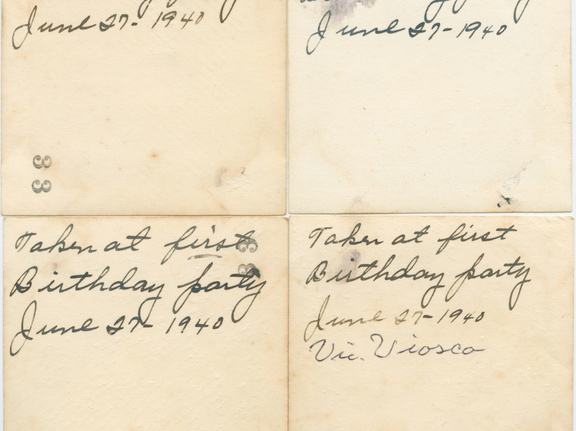 June 27- 1940
33
June 27-1940
Taken at first
33
Birthday party
June 27- 1940
Taken at first
Birthday party
June 27-1940
Vic. Viosca